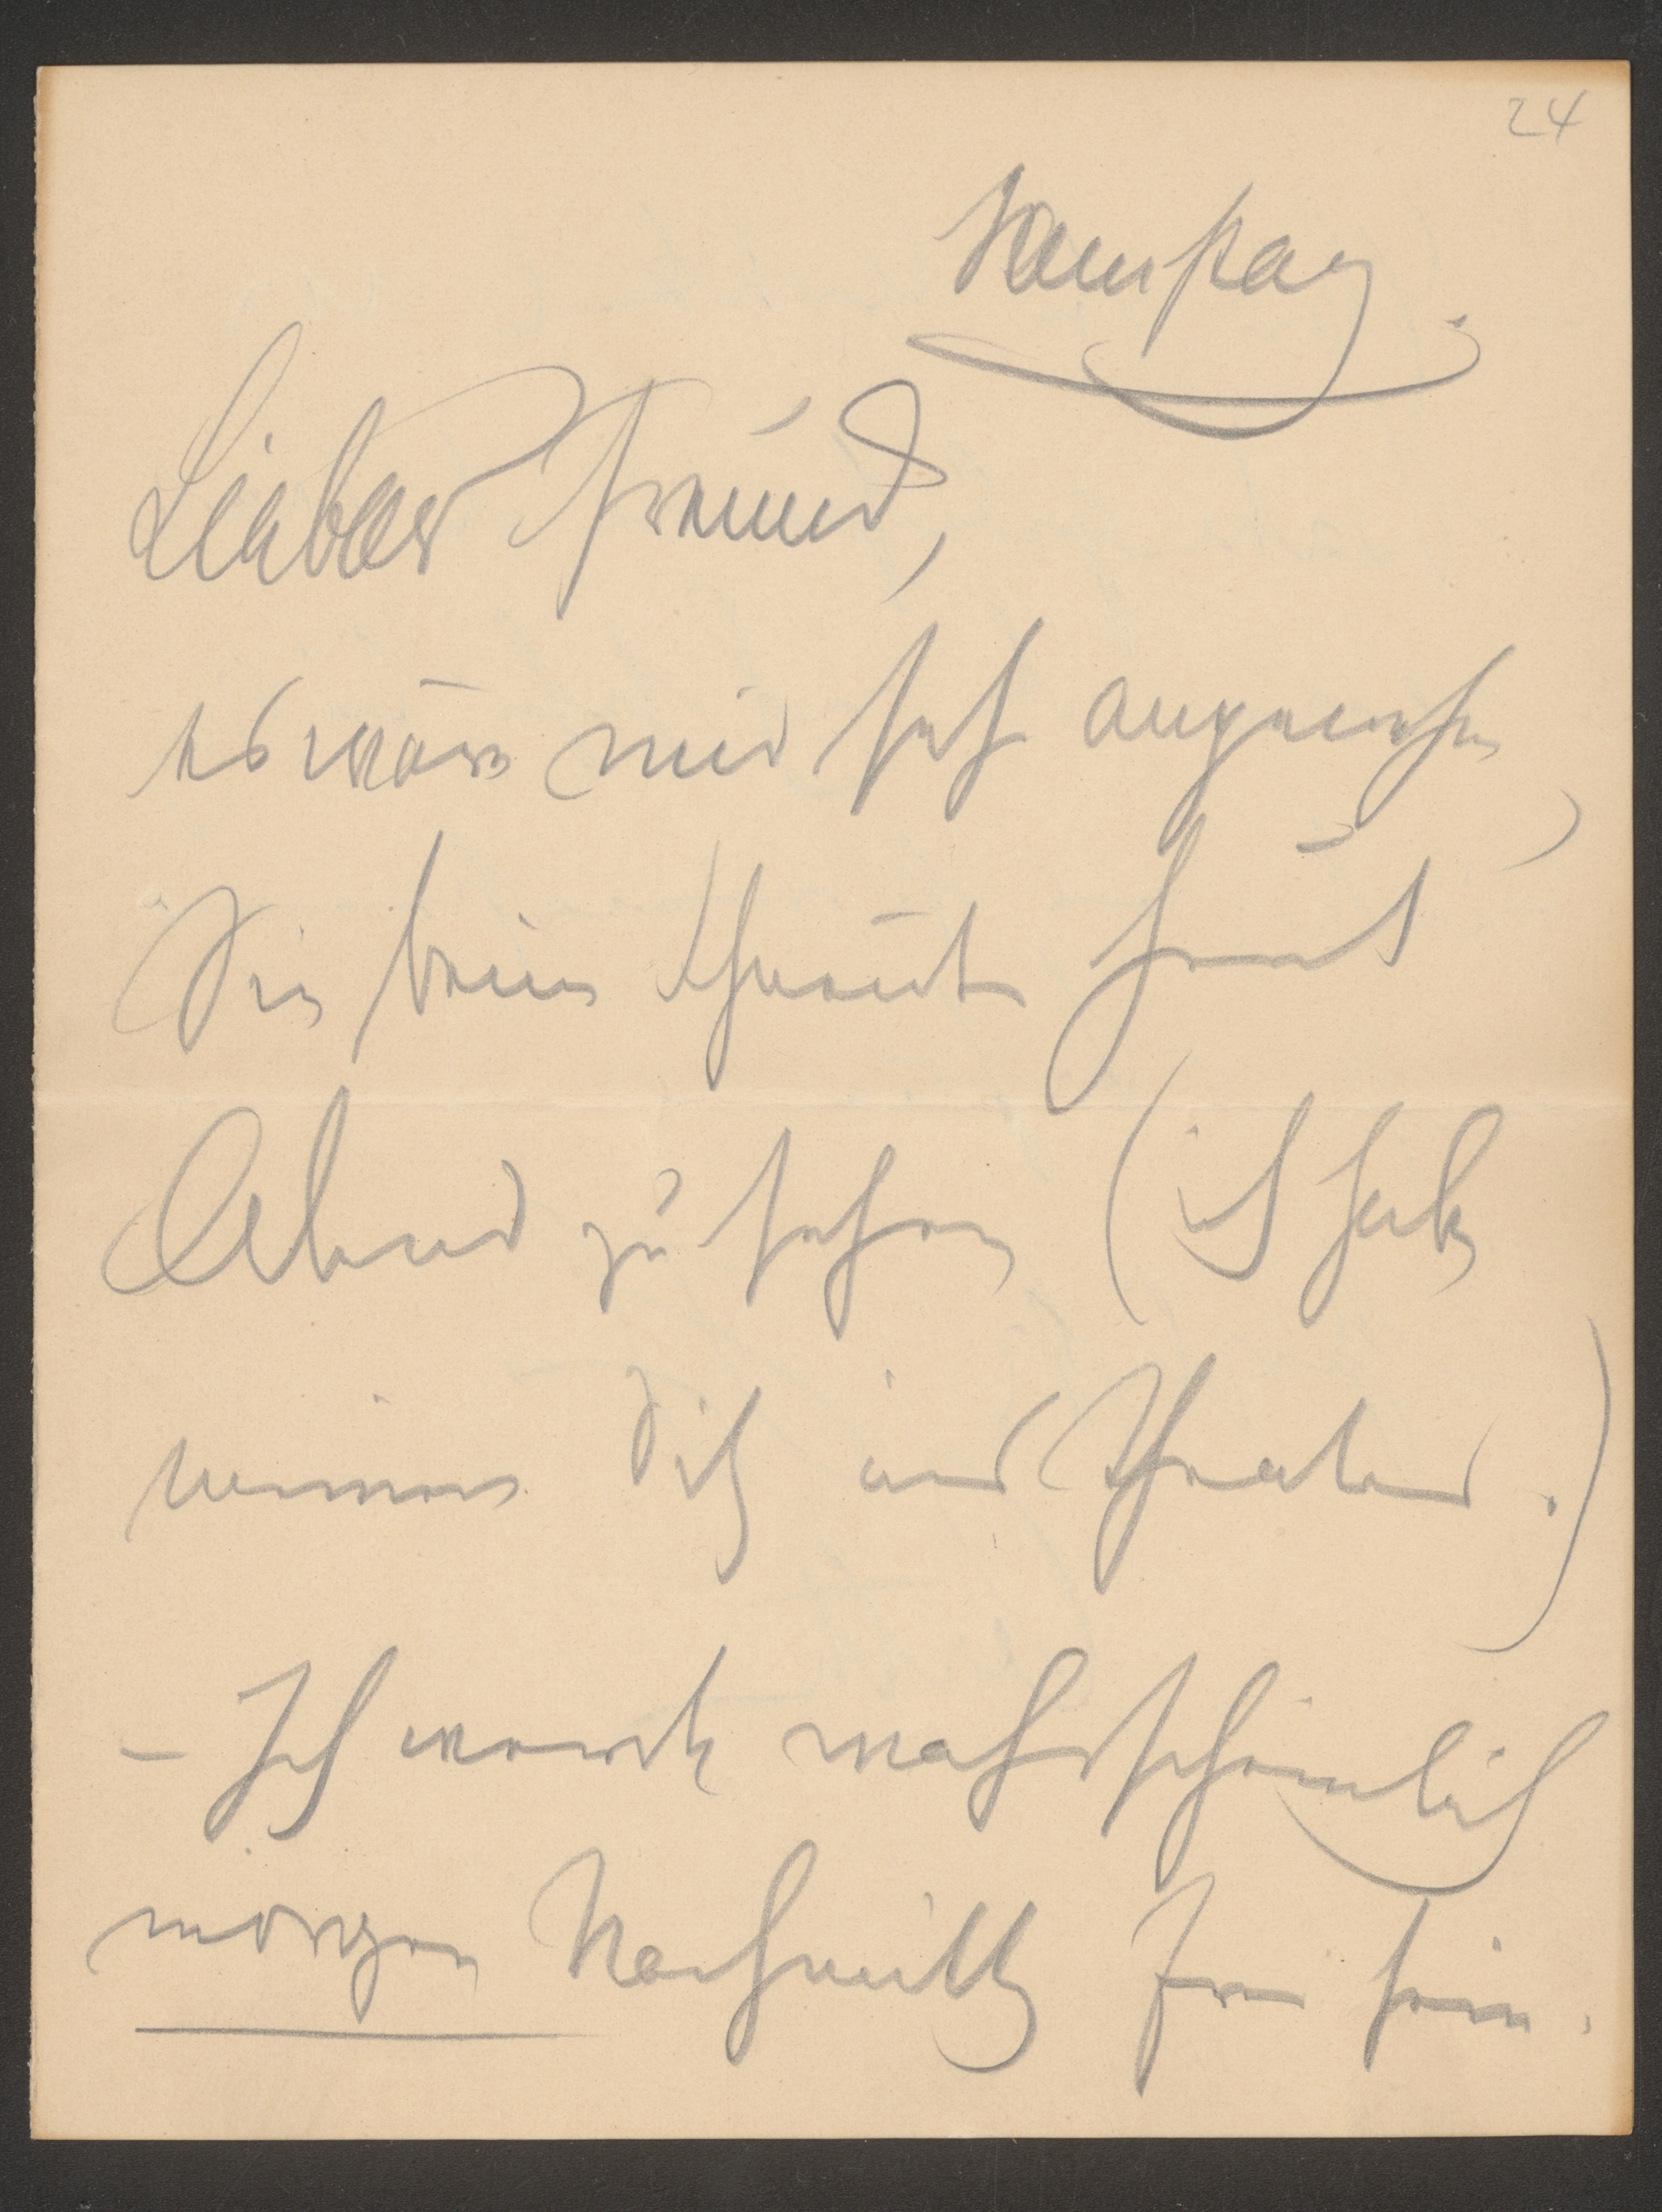 24
Samstag.
Lieber Freund,
es wäre mir sehr angenehm,
Sie beim Thneut heut
Abend zu sehen (ich habe
nemmen Sitz im Theater.)
– Ich werde wahrscheinlich
morgen Nachmittg frei sein.